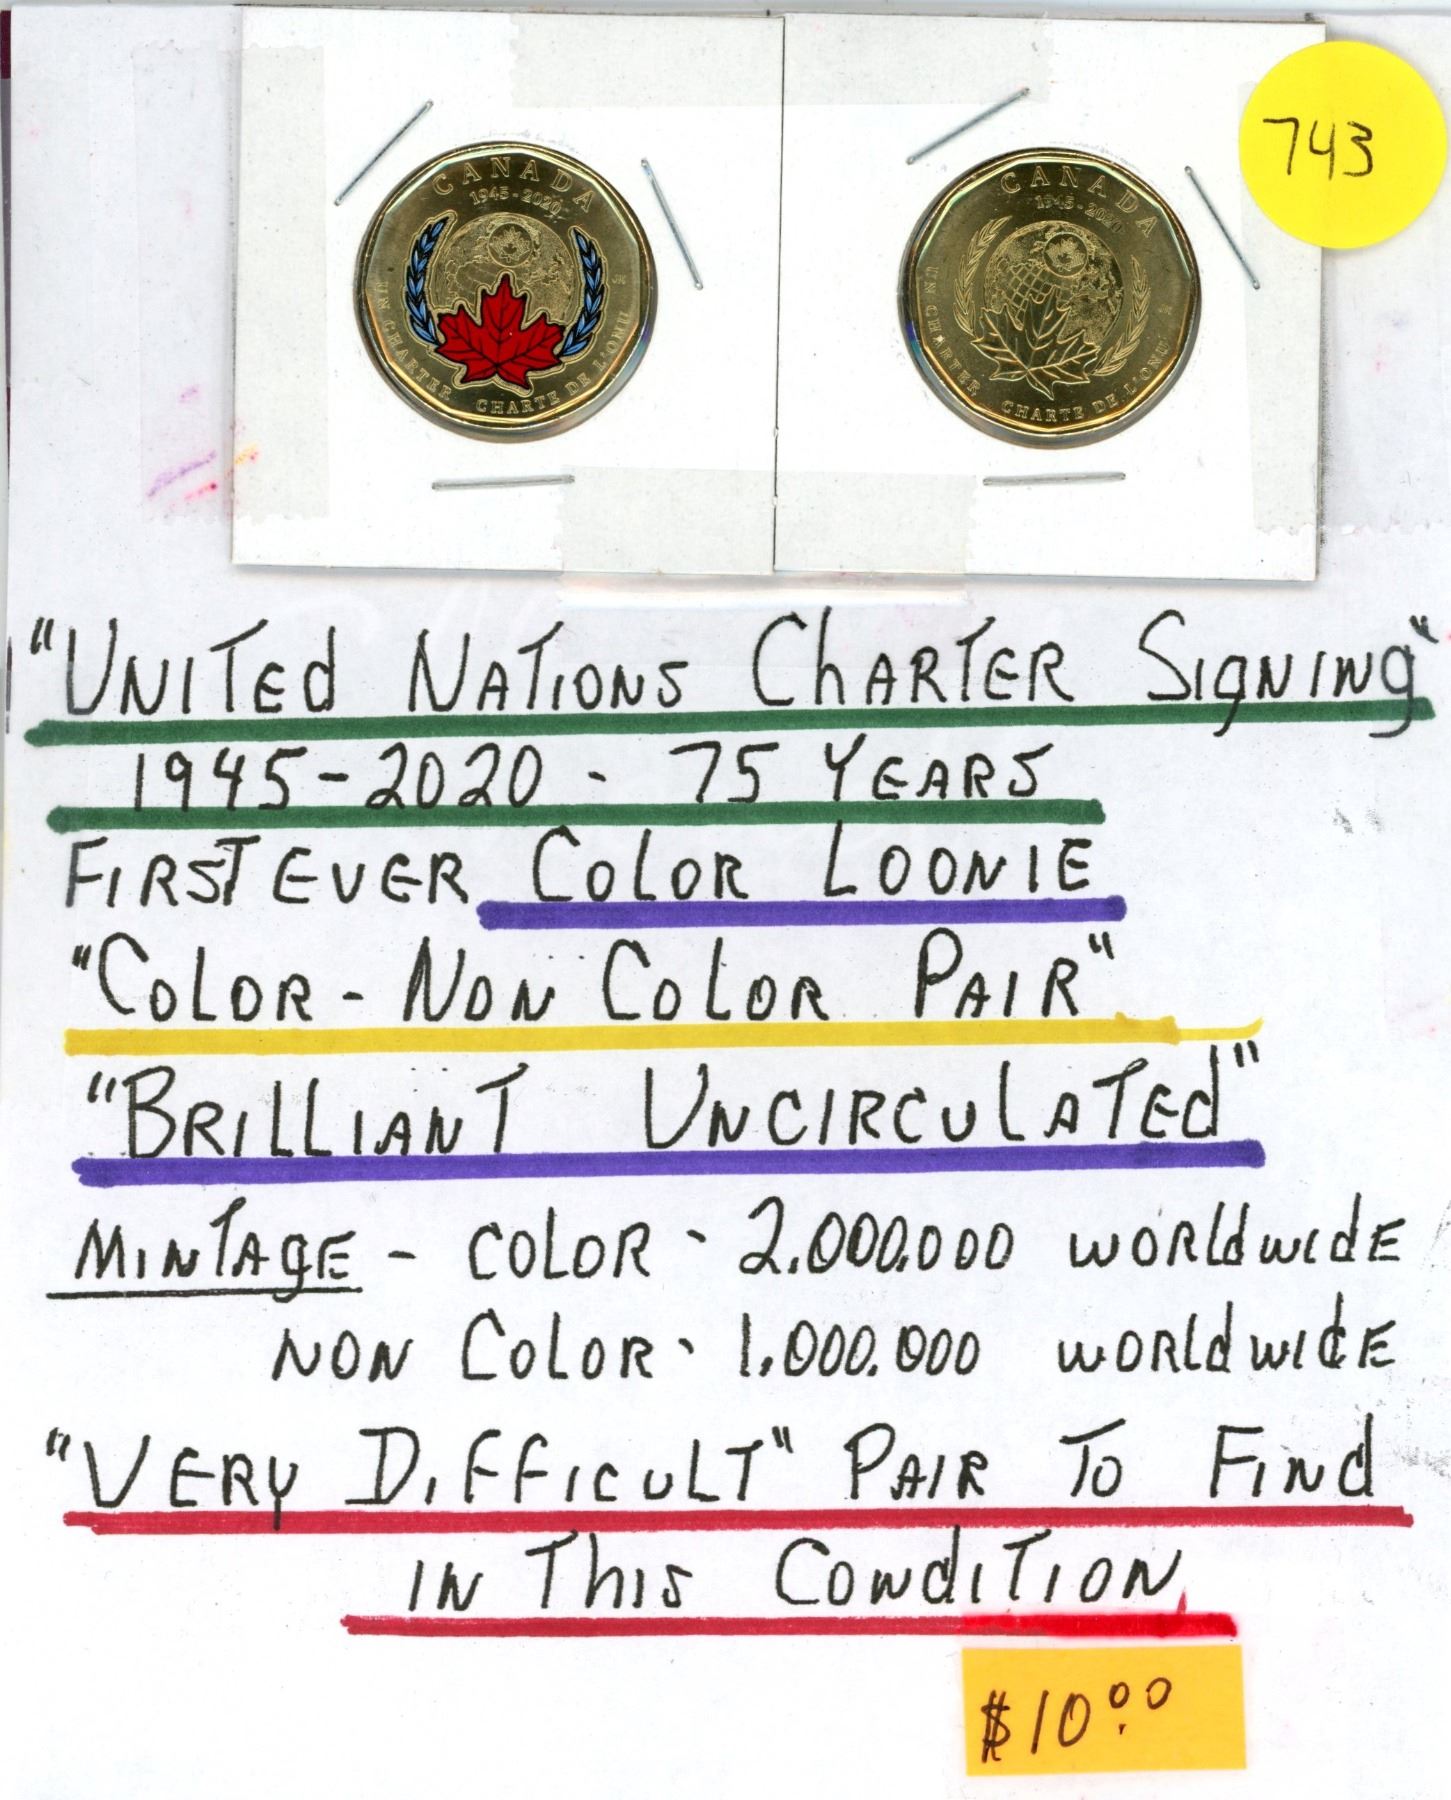 743
CANADA
1945-2020
UN CHARTER CHARTE DE L'ONU
CANADA
1945-2020
UN CHARTER CHARTE DE L'ONU
"UNITEd NATIONS ChARTER SIgNINg"
1945-2020 - 75 YEARS
FIRST EVER COlOR LOONIE
"COLOR - NON COLOR PAIR"
"BRILLIANT UNCIRCULATEd"
MINTAgE - COLOR - 2.000.000 WORldwidE
NON COlOR - 1.000.000 WORldwidE
"VERY DIFFICULT" PAIR TO FINd
IN ThIS CONdITION
$10.00